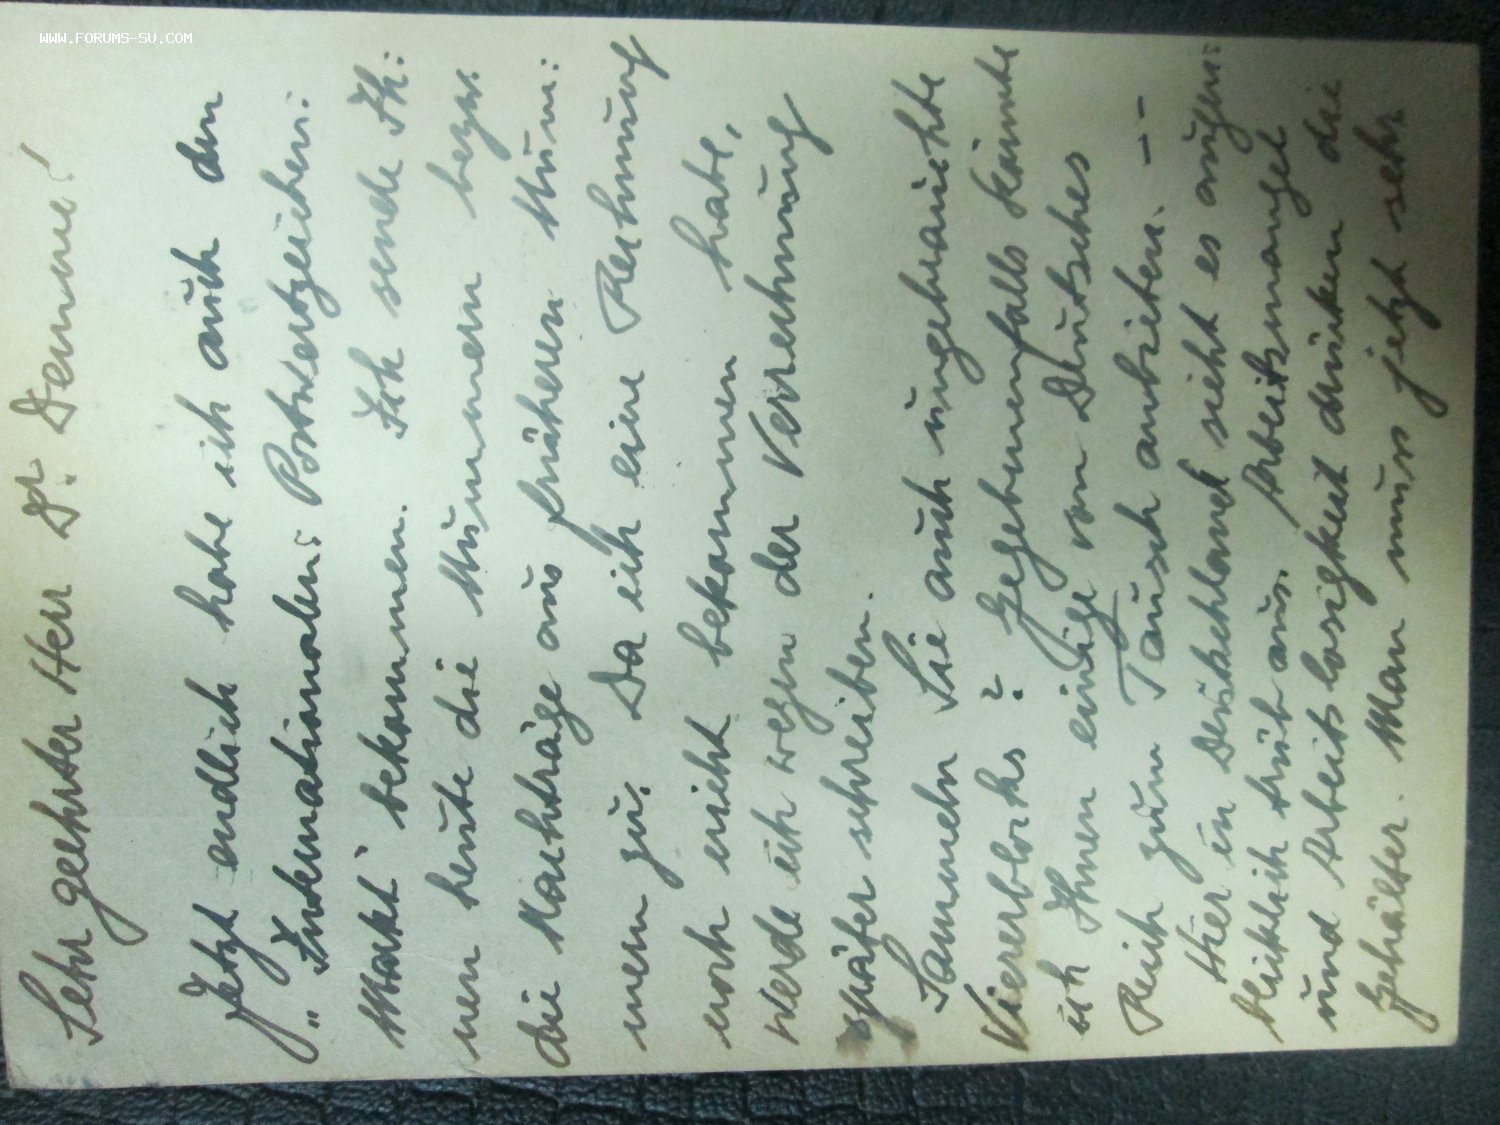 WWW.FORUMS-SU.COM
Sehr geehrter Herr Dr. Demme!
Jetzt endlich habe ich auch den
„Internationalen Postwertzeichen-
Markt" bekommen. Ich sende Ih-
nen heute die Nummern bezw.
die Nachträge aus früheren Num-
mern zu. Da ich eine Rechnung
noch nicht bekommen habe,
werde ich wegen der Verrechnung
später schreiben.
Sammeln Sie auch ungebrauchte
Viererblocks? Gegebenenfalls könnte
ich Ihnen einige von Deutsches
Reich zum Tausch anbieten. — —
Hier in Deutschland sieht es augen-
blicklich trüb aus. Arbeitsmangel
und Arbeitslosigkeit drücken die
Gehälter. Man muss jetzt sehr